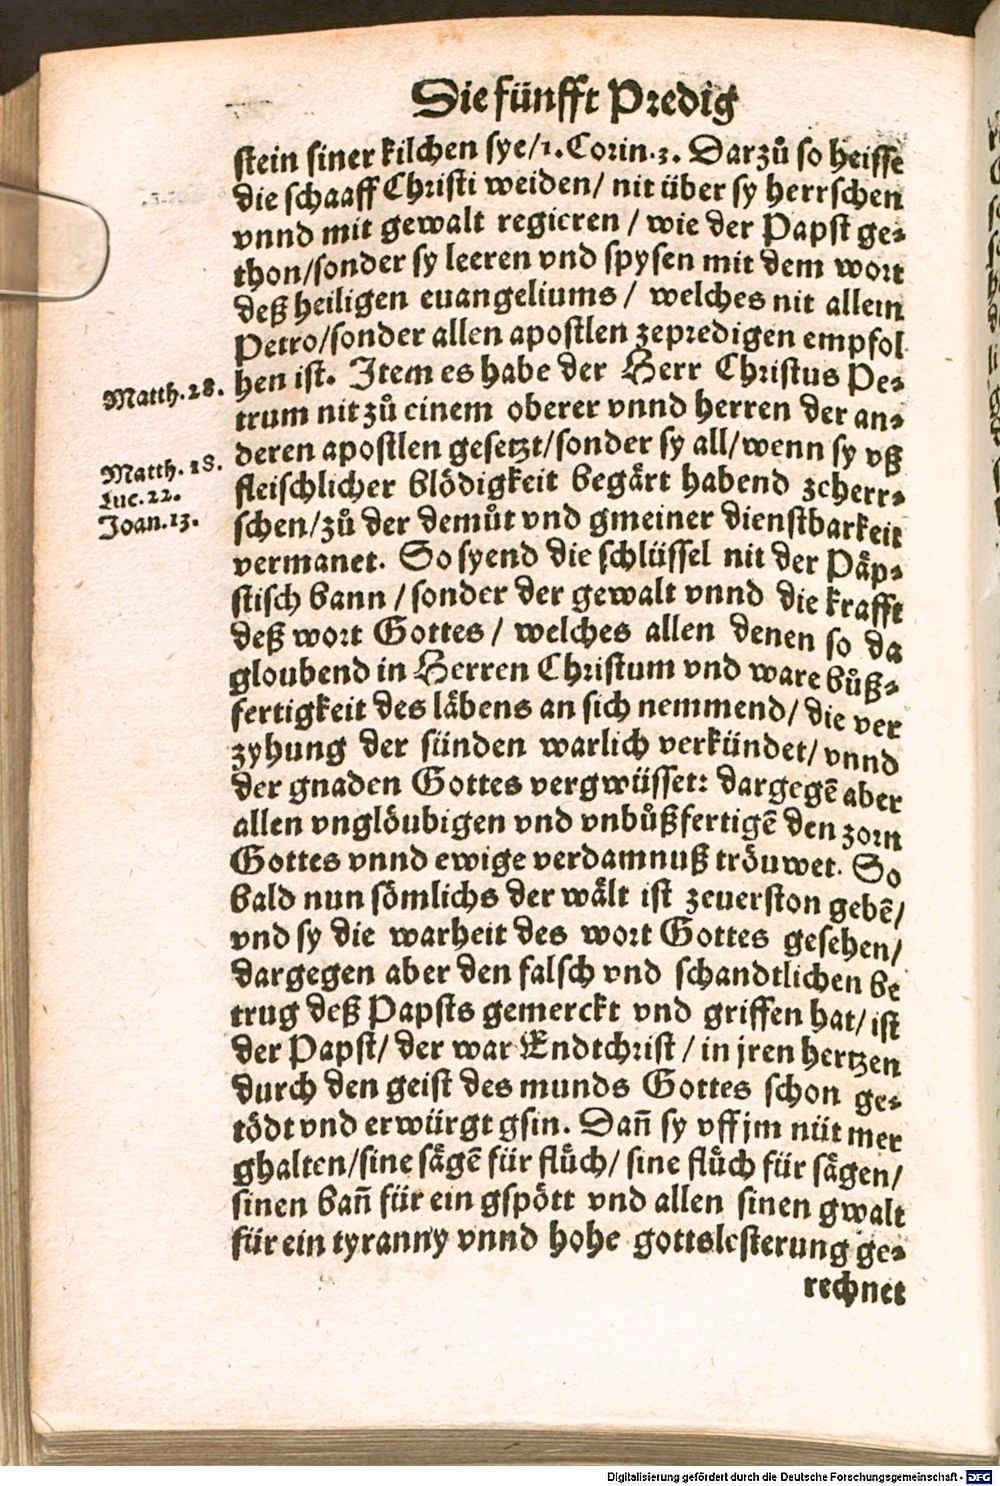 Die fünfft Predig
stein siner kilchen sye/1. Corin.3. Darzů so heisse
die schaaff Christi weiden/ nit über sy herrschen
vnnd mit gewalt regieren / wie der Papst ge-
thon/sonder sy leeren vnd spysen mit dem wort
deß heiligen euangeliums / welches nit allein
Petro/sonder allen apostlen zepredigen empfol
Matth.28. hen ist. Item es habe der Herr Christus Pe-
trum nit zů einem oberer vnnd herren der an-
Matth.18. deren apostlen gesetzt/sonder sy all/wenn sy vß
Luc.22. fleischlicher blödigkeit begärt habend zeherr-
Joan.13. schen/zů der demůt vnd gmeiner dienstbarkeit
vermanet. So syend die schlüssel nit der Päp-
stisch bann / sonder der gewalt vnnd die krafft
deß wort Gottes / welches allen denen so da
gloubend in Herren Christum vnd ware bůß-
fertigkeit des läbens an sich nemmend/ die ver
zyhung der sünden warlich verkündet/ vnnd
der gnaden Gottes vergwüsset: dargegē aber
allen vnglöubigen vnd vnbůßfertigē den zorn
Gottes vnnd ewige verdamnuß tröuwet. So
bald nun sömlichs der wält ist zeuerston gebē/
vnd sy die warheit des wort Gottes gesehen/
dargegen aber den falsch vnd schandtlichen be
trug deß Papsts gemerckt vnd griffen hat/ ist
der Papst/ der war Endtchrist / in jren hertzen
durch den geist des munds Gottes schon ge-
tödt vnd erwürgt gsin. Dañ sy vff jm nüt mer
ghalten/sine sägē für flůch/ sine flůch für sägen/
sinen bañ für ein gspött vnd allen sinen gwalt
für ein tyranny vnnd hohe gottslesterung ge-
rechnet
Digitalisierung gefördert durch die Deutsche Forschungsgemeinschaft - DFG